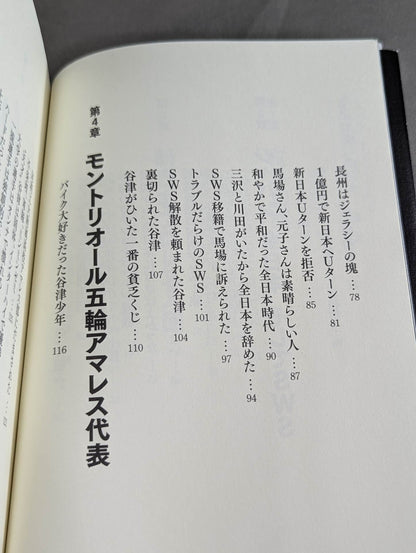 長州はジェラシーの塊…78
1億円で新日本へUターン…81
新日本Uターンを拒否…85
馬場さん、元子さんは素晴らしい人…87
和やかで平和だった全日本時代…90
三沢と川田がいたから全日本を辞めた…94
SWS移籍で馬場に訴えられた…97
トラブルだらけのSWS…101
SWS解散を頼まれた谷津…104
裏切られた谷津…107
谷津がひいた一番の貧乏くじ…110
第4章 モントリオール五輪アマレス代表
バイク大好きだった谷津少年…116